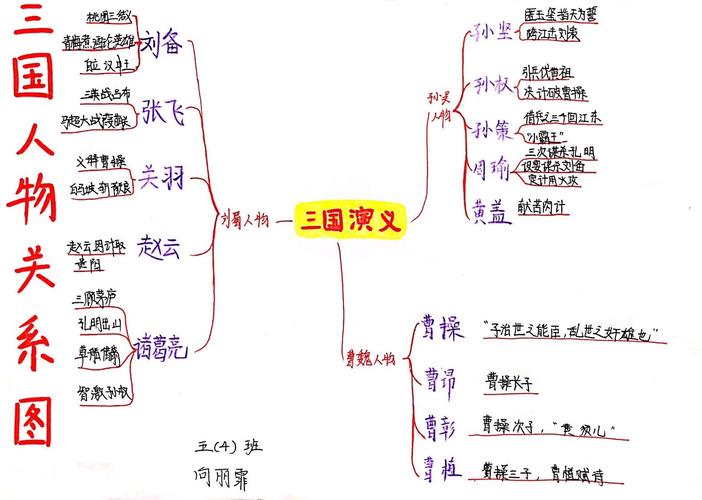 三国人物关系图
三国演义
刘蜀人物
刘备
桃园三结义
青梅煮酒论英雄
自立汉中王
张飞
三英战吕布
马超大战葭萌关
关羽
义释曹操
白马城斩敌良
赵云
赵云因计取
桂阳
诸葛亮
三顾茅庐
孔明出山
草船借箭
智激孙权
孙吴
人物
孙坚
匿玉玺指天为誓
跨江击刘表
孙权
引兵伐黄祖
决计破曹操
孙策
借兵三千回江东
"小霸王"
周瑜
三次谋杀孔明
设宴谋杀刘备
定计用火攻
黄盖
献苦肉计
曹魏人物
曹操
"子治世之能臣,乱世之奸雄也"
曹昂
曹操长子
曹彰
曹操次子,"黄须儿"
曹植
曹操三子,曹植赋诗
五(4)班
向丽霏